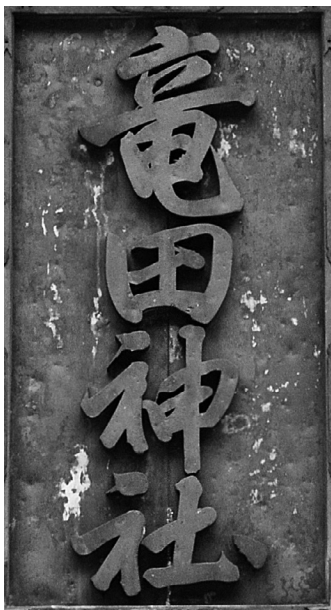 竜田神社